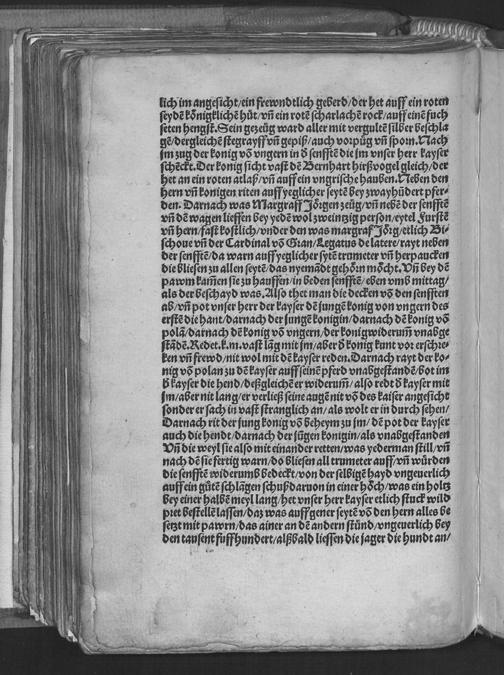 lich im angesicht/ein frewndtlich geberd/der het auff ein roten
seydē kōnigklichen hůt/vn̄ ein rotē scharlachen rock/auff einē fuch
seten hengst. Sein gezeüg ward aller mit vergultē silber beschla
gē/dergleichē stegrayff vn̄ gepiß/auch vorpüg vn̄ sporn. Nach
jm zug der konig vō vngern in d̄ senfftē die jm vnser herr kayser
schēckt. Der konig sicht vast dē Bernhart hirßuogel gleich/der
het an ein roten atlaß/vn̄ auff ein vngrische hauben. Neben den
hern vn̄ konigen riten auff yeglicher seytē bey zwayhūdert pfer-
den. Darnach was Margraff Jörgen zeüg/vn̄ nebē der senfftē
vn̄ dē wagen lieffen bey yedē wol zweintzig person/eytel Furstē
vn̄ hern/fast kostlich/vnder den was margraf Jörg/etlich Bi-
schoue vn̄ der Cardinal vō Gran/Legatus de latere/rayt neben
der senfftē/da warn auff yeglicher sytē trumeter vn̄ herpaucken
die bliesen zu allen seytē/das nyemādt gehörn mōcht. Vn̄ bey dē
pawm kam̄en sie zu hauffen/in beden senfftē/eben vmb mittag/
als der beschayd was. Also thet man die decken vō den senfften
ab/vn̄ pot vnser herr der kayser dē jungē konig von vngern des
erstē die hant/darnach der jungē konigin/darnach dē konig vō
polā/darnach dē konig vō vngern/der konig widerum̄ vnabge
stādē. Redet.k.m.vast lāg mit jm/aber d̄ konig kunt vor erschre-
ken vn̄ frewd/nit wol mit dē kayser reden. Darnach rayt der ko-
nig vō polan zu dē kayser auff seinē pferd vnabgestandē/bot im
d̄ kayser die hend/deßgleichē er widerum̄/also redt d̄ kayser mit
jm/aber nit lang/er verließ seine augē nit vō des kaiser angesicht
sonder er sach in vast stranglich an/als wolt er in durch sehen/
Darnach rit der jung konig vō beheym zu jm/dē pot der kayser
auch die hendt/darnach der jūgen konigin/als vnabgestanden
Vn̄ die weyl sie also mit einander retten/was yederman still/vn̄
nach dē sie fertig warn/do bliesen all trumeter auff/vn̄ würden
die senfftē widerum̄b bedeckt/von der selbigē hayd vngeuerlich
auff ein gůtē schlāgen schuß daruon in einer höch/was ein holtz
bey einer halbē meyl lang/het vnser herr kayser etlich stuck wild
pret bestellē lassen/daz was auff gener seytē vō den hern alles be
setzt mit pawrn/das ainer an dē andern stünd/vngeuerlich bey
den tausent fuffhundert/alßbald liessen die jager die hundt an/